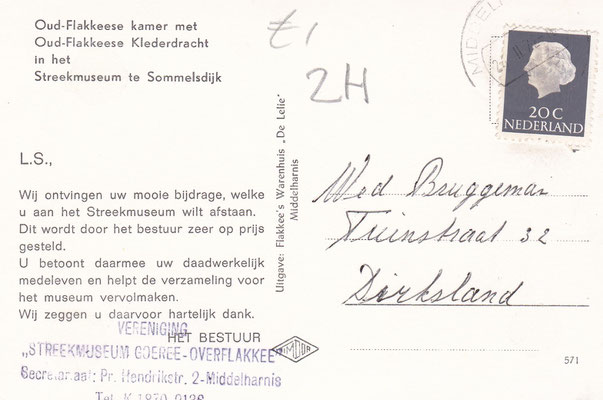 Oud-Flakkeese kamer met
Oud-Flakkeese Klederdracht
in het
Streekmuseum te Sommelsdijk
L.S.,
Wij ontvingen uw mooie bijdrage, welke
u aan het Streekmuseum wilt afstaan.
Dit wordt door het bestuur zeer op prijs
gesteld.
U betoont daarmee uw daadwerkelijk
medeleven en helpt de verzameling voor
het museum vervolmaken.
Wij zeggen u daarvoor hartelijk dank.
HET BESTUUR
VERENIGING
„STREEKMUSEUM GOEREE-OVERFLAKKEE"
Secretariaat: Pr. Hendrikstr. 2-Middelharnis
Tel. K 1870-2136
Uitgave: Flakkee's Warenhuis „De Lelie"
Middelharnis
2H
MIDDEL
20 C
NEDERLAND
Wed Bruggeman
Tuinstraat 32
Dirksland
571